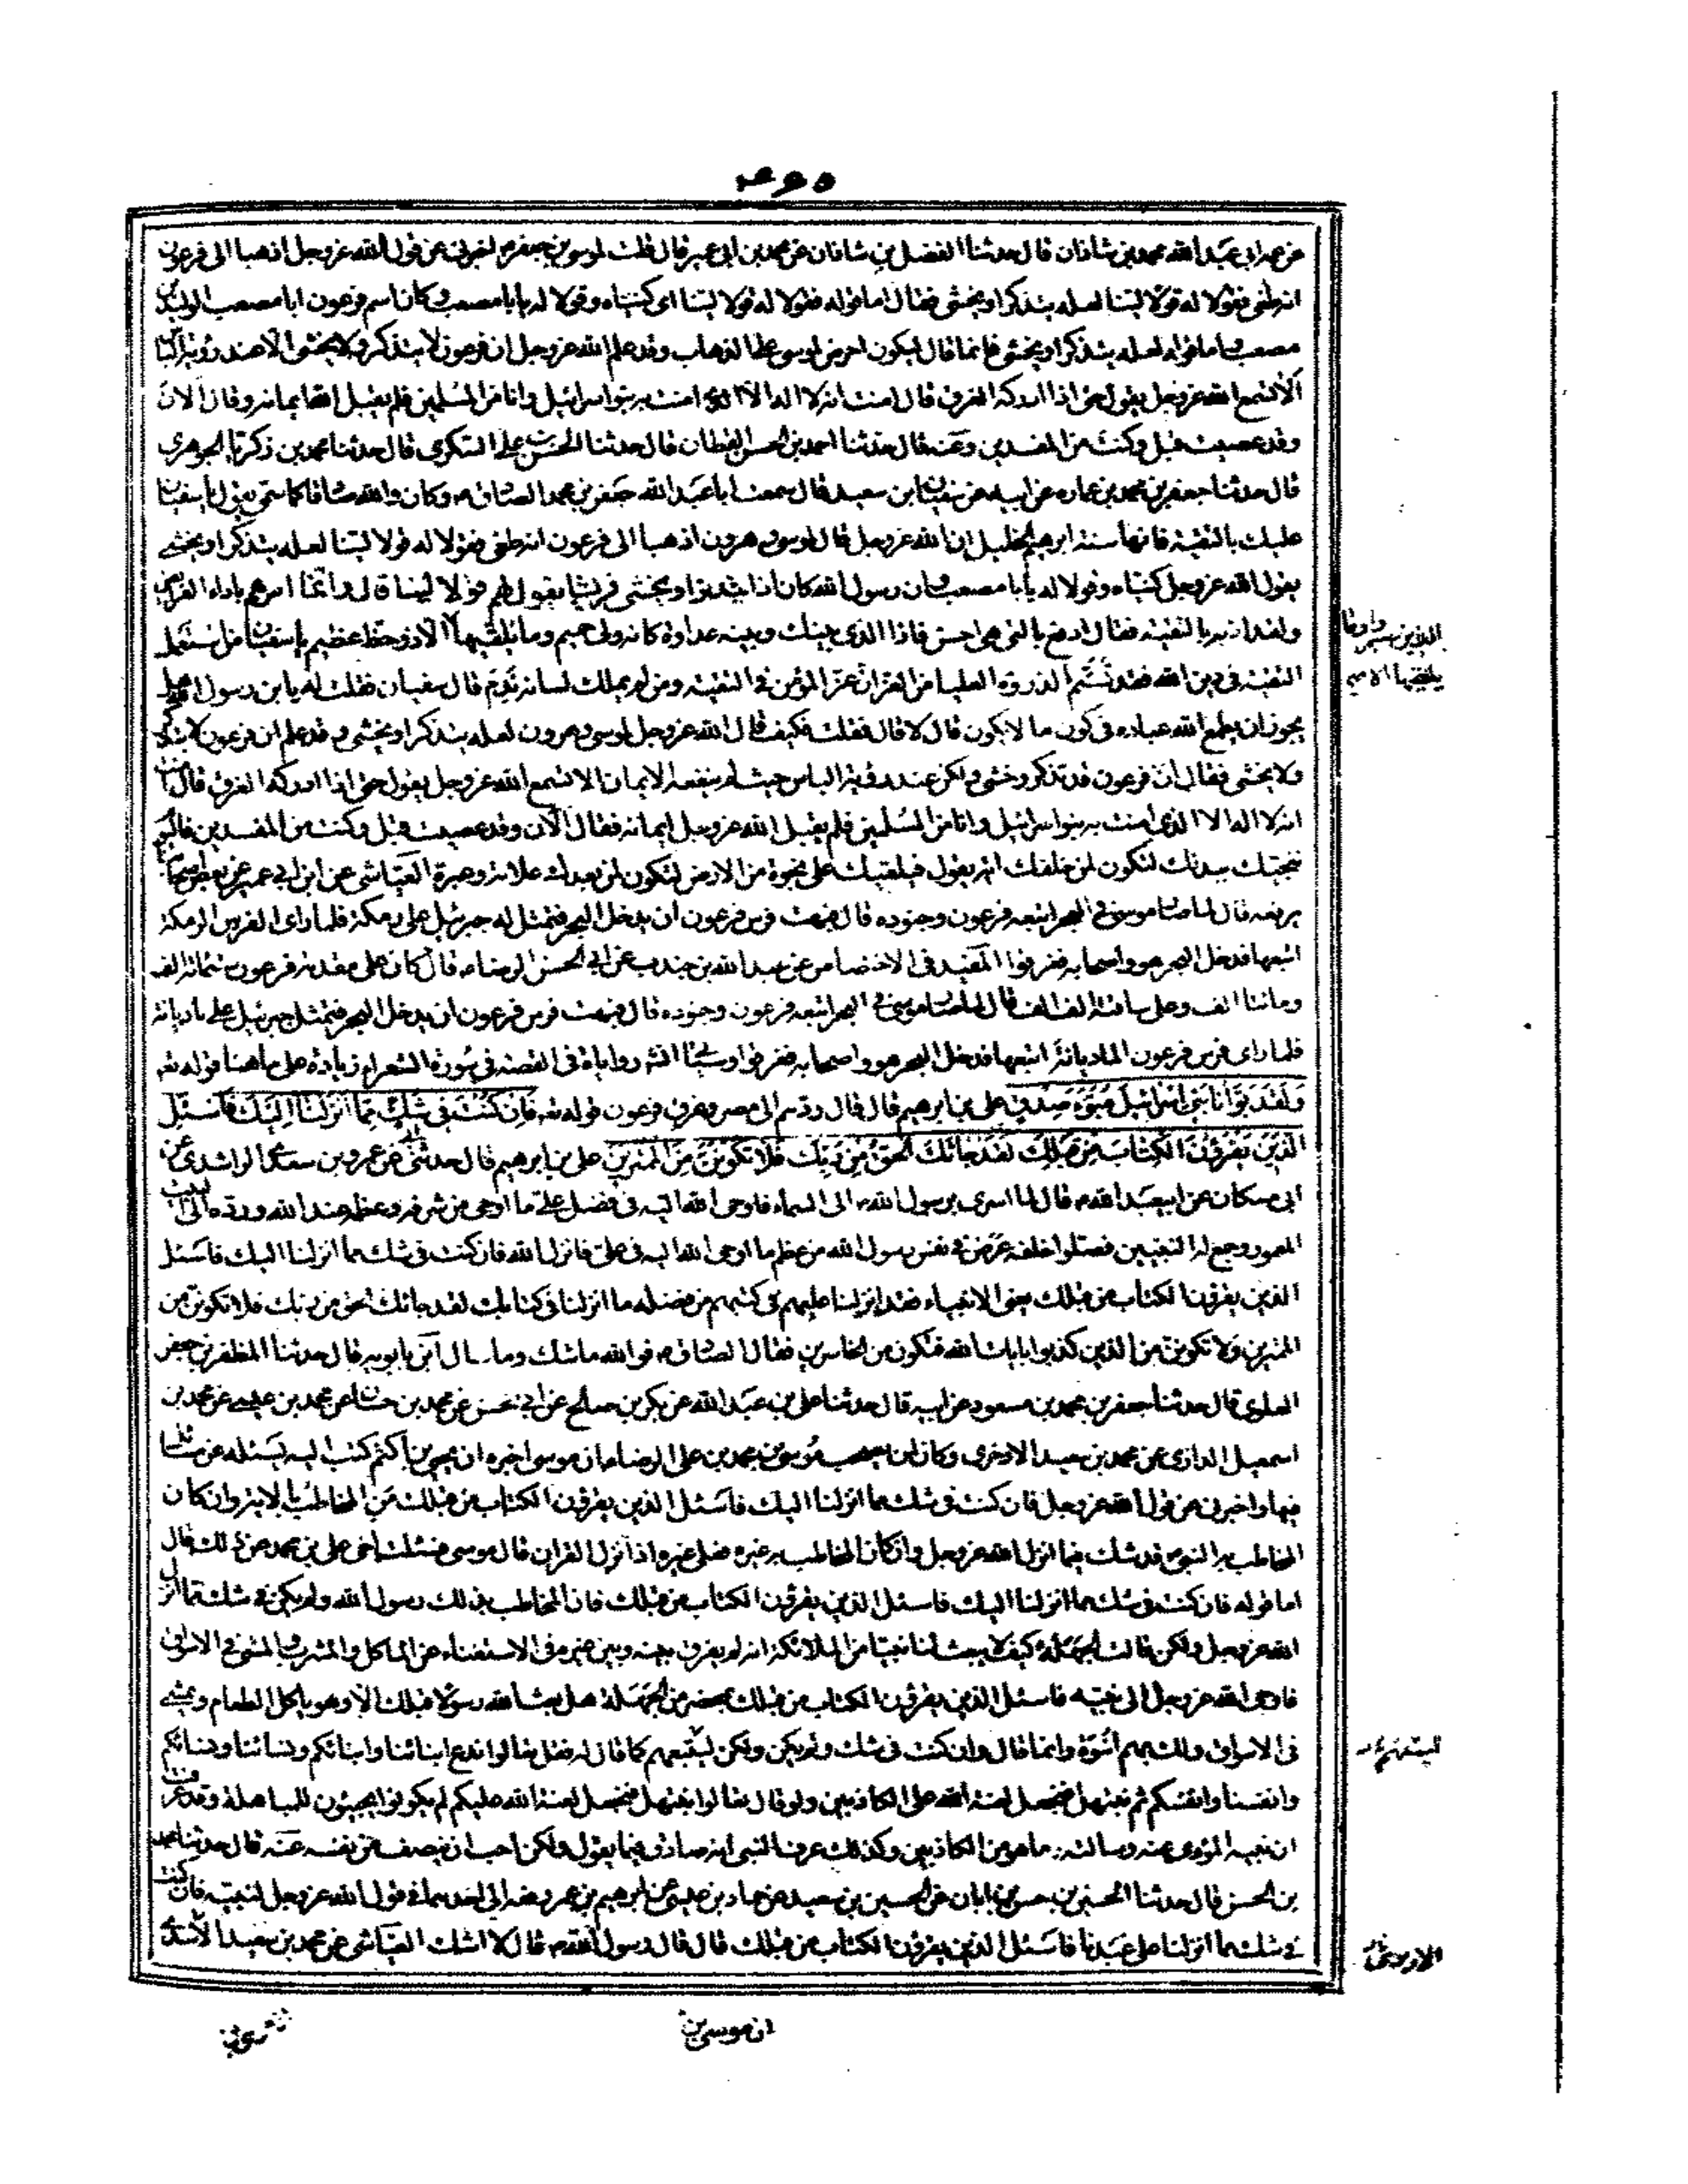 عن عمه ابي عبد الله محمد بن شاذان قال حدثنا الفضل بن شاذان عن محمد بن ابي عمير قال قلت لموسى بن جعفر اخبرني عن قول الله عز وجل اذهبا الى فرعون
انه طغى فقولا له قولا لينا لعله يتذكر او يخشى فقال اما قوله فقولا له قولا لينا اى كنياه وقولا له يا ابا مصعب وكان اسم فرعون ابا مصعب الوليد بن
مصعب واما قوله لعله يتذكر او يخشى فانما قال ليكون احرص لموسى على الذهاب وقد علم الله عز وجل ان فرعون لا يتذكر ولا يخشى الا عند رؤية الباس
الا تسمع الله عز وجل يقول حتى اذا ادركه الغرق قال امنت انه لا اله الا الذى امنت به بنو اسرائيل وانا من المسلمين فلم يقبل الله ايمانه وقال الان
وقد عصيت قبل وكنت من المفسدين وعنه قال حدثنا احمد بن الحسن القطان قال حدثنا الحسن بن على السكرى قال حدثنا محمد بن زكريا الجوهرى
قال حدثنا جعفر بن محمد بن عماره عن ابيه عن سفيان ابن سعيد قال سمعت ابا عبد الله جعفر بن محمد الصادق وكان والله صادقا كما سمى يقول يا سفيان
عليك بالتقية فانها سنة ابرهيم الخليل ان الله عز وجل قال لموسى وهرون اذهبا الى فرعون انه طغى فقولا له قولا لينا لعله يتذكر او يخشى
يقول الله عز وجل كنياه وقولا له يا ابا مصعب وان رسول الله كان اذا اراد سفرا
ولقد ادبه بالتقية فقال ادفع بالتى هى احسن فاذا الذى بينك وبينه عداوة كانه ولى حميم وما يلقيها الا ذو حظ عظيم يا سفيان من استعمل
التقية فى دين الله فقد تسنم الذروة العليا من القران عز المؤمن فى التقية ومن لم يملك لسانه ندم قال سفيان فقلت له يا بن رسول الله هل
يجوز ان يطمع الله عباده فى كون ما لا يكون قال لا قال فقلت فكيف قال الله عز وجل لموسى وهرون لعله يتذكر او يخشى وقد علم ان فرعون لا يتذكر
ولا يخشى فقال ان فرعون قد تذكر وخشى ولكن عند رؤية الباس حيث لم ينفعه الايمان الا تسمع الله عز وجل يقول حتى اذا ادركه الغرق قال امنت
انه لا اله الا الذى امنت به بنو اسرائيل وانا من المسلمين فلم يقبل الله عز وجل ايمانه فقال الآن وقد عصيت قبل وكنت من المفسدين فاليوم
ننجيك ببدنك لتكون لمن خلفك اية يقول فيلقيك على نجوة من الارض لتكون لمن بعدك علامة وعبرة العياشى عن ابن ابي عمير عن بعض اصحابنا
يرفعه قال لما صار موسى فى البحر اتبعه فرعون وجنوده قال فتهيب فرس فرعون ان يدخل البحر فتمثل له جبرئيل على رمكة فلما راى الفرس الرمكة
اتبعها فدخل البحر هو واصحابه فغرقوا المفيد فى الاختصاص عن عبد الله بن جندب عن ابي الحسن الرضا قال كان على مقدمة فرعون ستمائة الف
ومائتا الف وعلى ساقته الف الف قال لما صار موسى فى البحر اتبعه فرعون وجنوده قال فتهيب فرس فرعون ان يدخل البحر فتمثل جبرئيل على ماديانة
فلما راى فرس فرعون الماديانة اتبعها فدخل البحر هو واصحابه فغرقوا وسياتى انشاء الله روايات فى القصة فى سورة الشعراء زيادة على ما هنا قوله تعالى
وَلَقَدْ بَوَّأْنَا بَنِي اِسْرَائِيلَ مُبَوَّءَ صِدْقٍ على بن ابرهيم قال قال ردهم الى مصر وغرق فرعون قوله تعالى فَاِنْ كُنْتَ فِي شَكٍّ مِمَّا اَنْزَلْنَا اِلَيْكَ فَاسْئَلِ
الَّذِينَ يَقْرَؤُنَ الْكِتَابَ مِنْ قَبْلِكَ لَقَدْ جَائَكَ الْحَقُّ مِنْ رَبِّكَ فَلَا تَكُونَنَّ مِنَ الْمُمْتَرِينَ على بن ابرهيم قال حدثنى ابى عن عمرو بن سعيد الراشدى عن
ابن مسكان عن ابيعبد الله قال لما اسرى برسول الله الى السماء فاوحى الله اليه فى فضل على ما اوحى من شرفه وعظمه عند الله ورده الى البيت
المعمور وجمع له النبيين فصلوا خلفه عرض فى نفس رسول الله من عظم ما اوحى الله اليه فى على فانزل الله فان كنت فى شك مما انزلنا اليك فاسئل
الذين يقرؤن الكتاب من قبلك يعنى الانبياء فقد انزلنا عليهم فى كتبهم من فضله ما انزلنا فى كتابك لقد جائك الحق من ربك فلا تكونن من
الممترين ولا تكونن من الذين كذبوا بايات الله فتكون من الخاسرين فقال الصادق فو الله ما شك وما سال ابن بابويه قال حدثنا المظفر بن جعفر
العلوى قال حدثنا جعفر بن محمد بن مسعود عن ابيه قال حدثنا على بن عبد الله عن بكر بن صالح عن ابى عن محمد بن حسان عن محمد بن عيسى عن محمد بن
اسمعيل الدارى عن محمد بن سعيد الاذخرى وكان ممن يصحب موسى بن محمد بن على الرضا ان موسى اخبره ان يحيى بن اكثم كتب اليه يسئله عن مسائل
فيها واخبرنى عن قول الله عز وجل فان كنت فى شك مما انزلنا اليك فاسئل الذين يقرؤن الكتاب من قبلك من المخاطب بالاية وان كان
المخاطب به النبى قد شك فيما انزل الله عز وجل وان كان المخاطب به غيره فعلى غيره اذا انزل القران قال موسى فسئلت اخى على بن محمد عن ذلك قال
اما قوله فان كنت فى شك مما انزلنا اليك فاسئل الذين يقرؤن الكتاب من قبلك فان المخاطب بذلك رسول الله ولم يكن فى شك مما انزل
الله عز وجل ولكن قالت الجهلة كيف لا يبعث لنا نبيا من الملائكة انه لم يفرق بينه وبين غيره فى الاستغناء عن الماكل والمشرب والمشى فى الاسواق
فاوحى الله عز وجل الى نبيه فاسئل الذين يقرؤن الكتاب من قبلك بمحضر من الجهلة هل بعث الله رسولا قبلك الا وهو ياكل الطعام ويمشى
فى الاسواق ولك بهم اسوة وانما قال وان كنت فى شك ولم يكن ولكن ليتبعهم كما قال له فقل تعالوا ندع ابنائنا وابنائكم ونسائنا ونسائكم
وانفسنا وانفسكم ثم نبتهل فنجعل لعنة الله على الكاذبين ولو قال تعالوا نبتهل فنجعل لعنة الله عليكم لم يكونوا يجيبون للمباهلة وقد عرف
ان نبيه المؤدى عنه رسالته وما هو من الكاذبين وكذلك عرف النبى انه صادق فيما يقول ولكن احب ان ينصف من نفسه عنه قال حدثنا محمد
بن الحسن قال حدثنا الحسين بن حسن بن ابان عن الحسين بن سعيد عن حماد بن عيسى عن ابرهيم بن عمر رفعه الى احدهما فى قول الله عز وجل لنبيه فان كنت
فى شك مما انزلنا على عبدنا فاسئل الذين يقرؤن الكتاب من قبلك قال قال رسول الله قال لا اشك العياشى عن محمد بن سعيد الاسدى
الذين صبروا وما
يلقيها الا
ان موسى بن